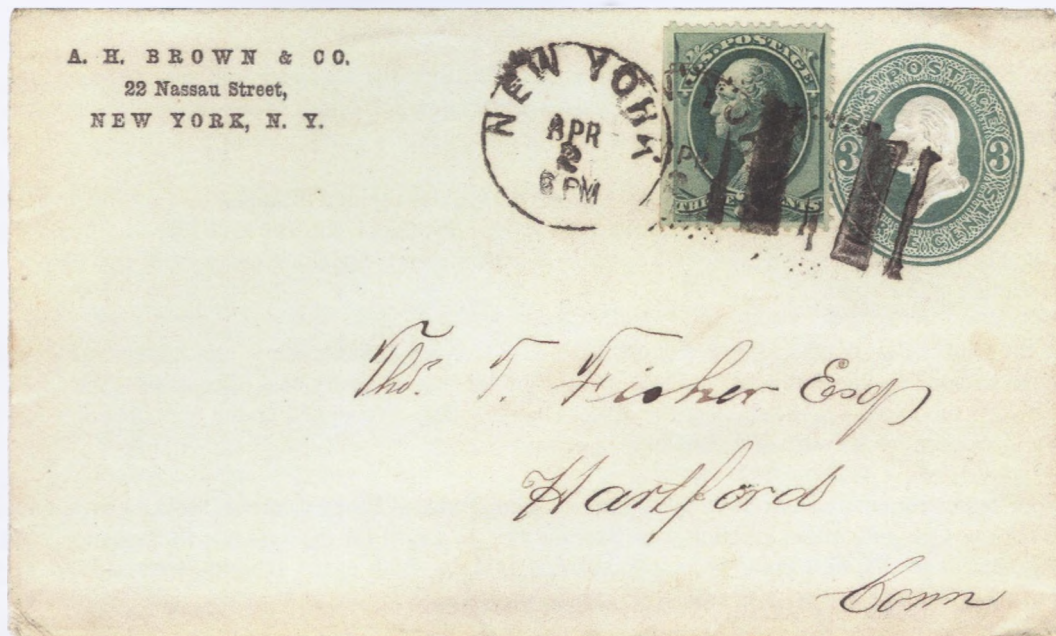 A. H. BROWN & CO.
22 Nassau Street,
NEW YORK, N. Y.
NEW YORK
APR
2
6 PM
U.S. POSTAGE
THREE CENTS
U.S. POSTAGE
3 3
THREE CENTS
Thos. T. Fisher Esq
Hartford
Conn